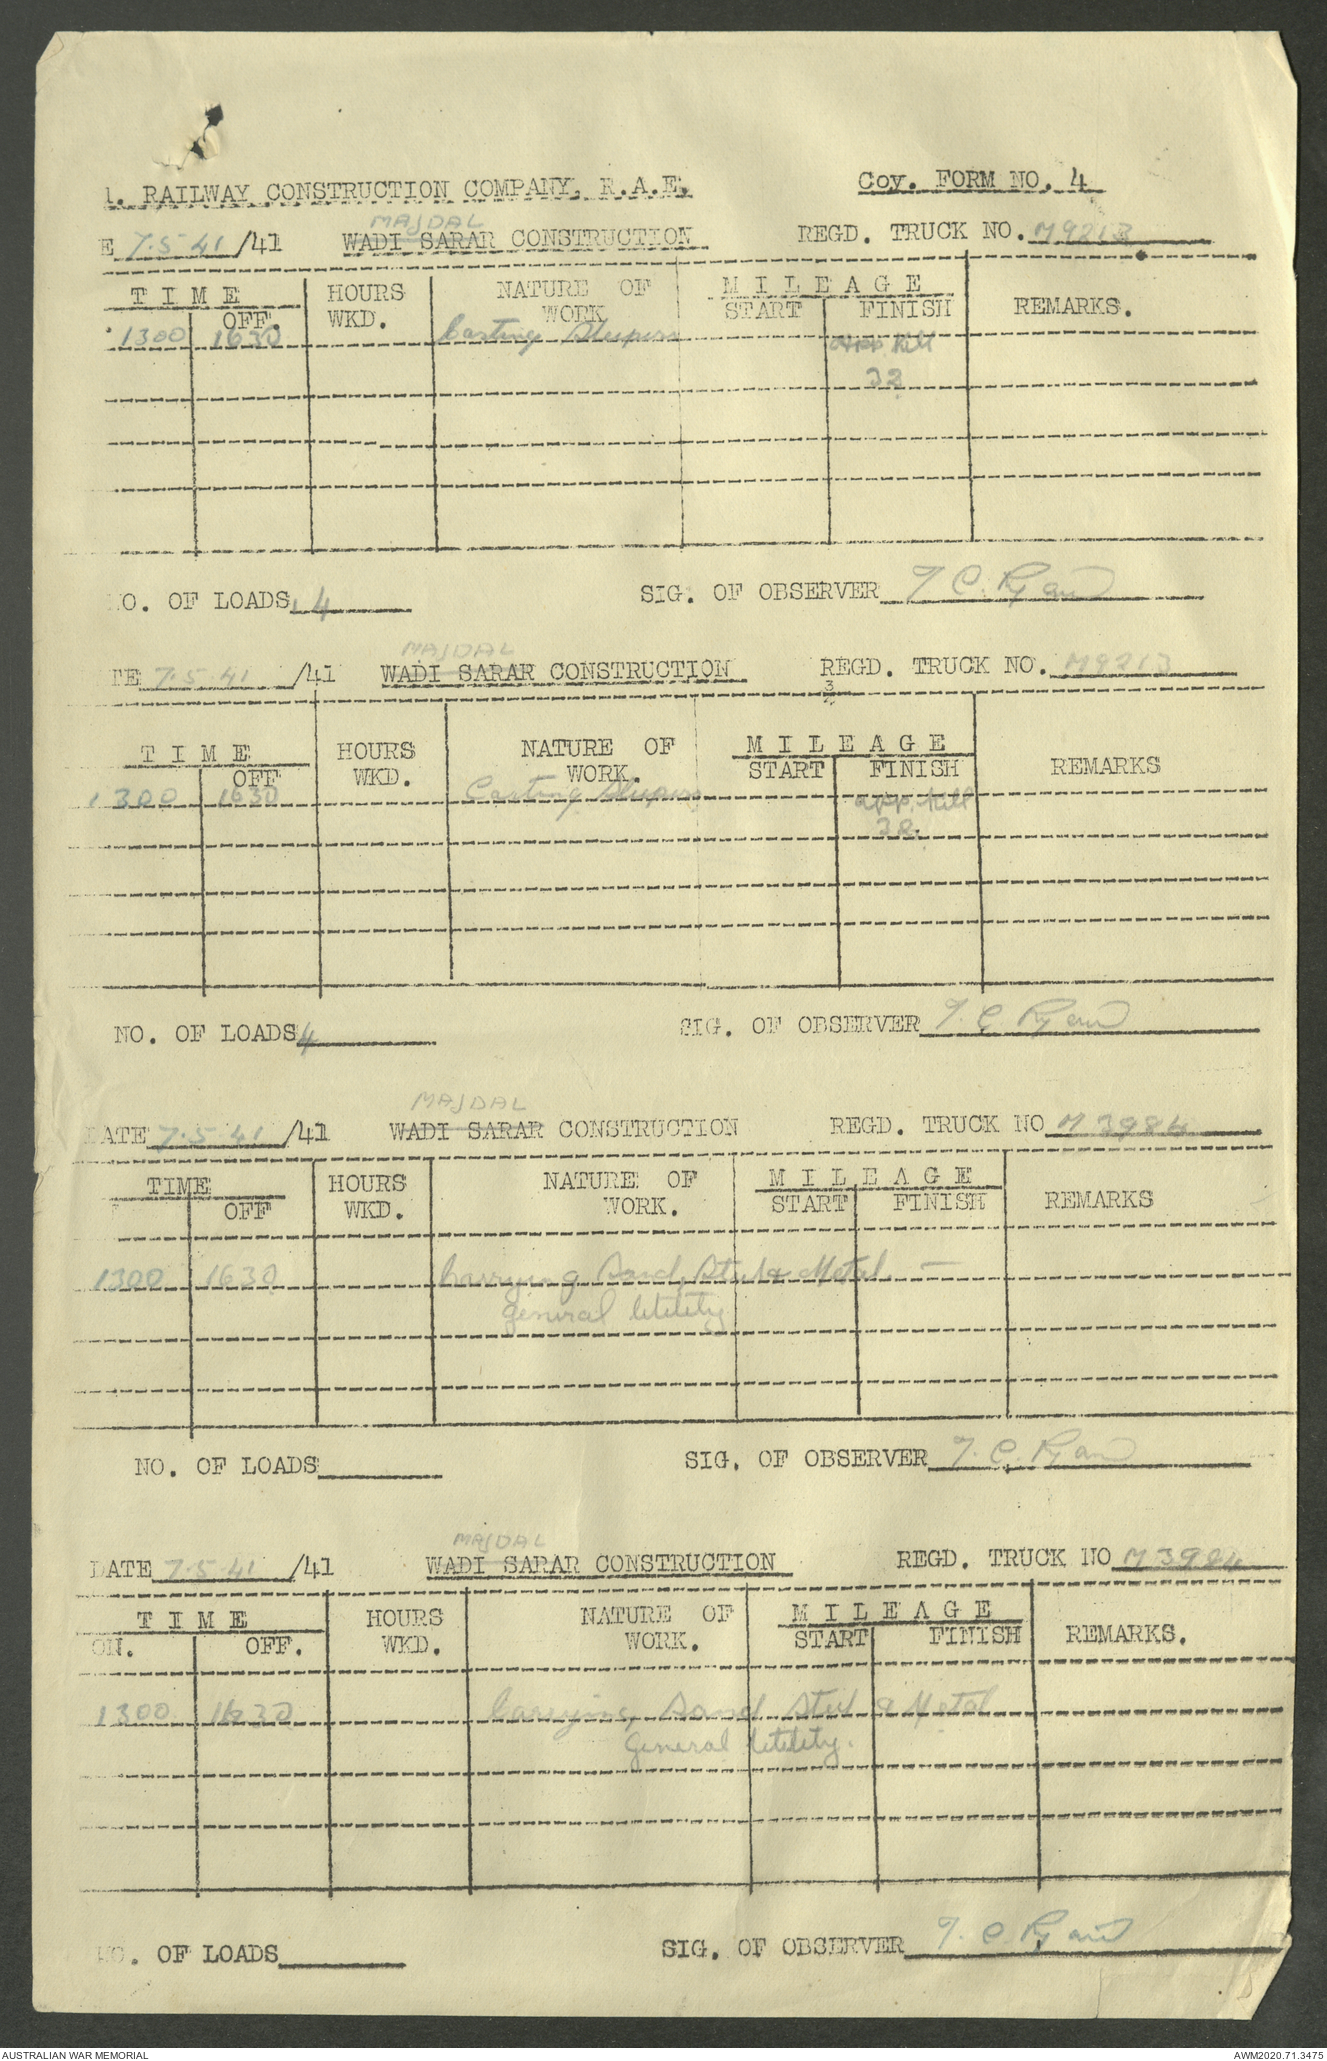 1. RAILWAY CONSTRUCTION COMPANY, R.A.E. Coy. FORM NO. 4
MAJDAL
E 7.5.41 /41 WADI SARAR CONSTRUCTION REGD. TRUCK NO. M9213
TIME HOURS NATURE OF MILEAGE
OFF. WKD. WORK START FINISH REMARKS.
1300 1630 Carting Sleepers app Kill
32
NO. OF LOADS 4 SIG. OF OBSERVER T C. Ryan
MAJDAL
TE 7.5.41 /41 WADI SARAR CONSTRUCTION REGD. TRUCK NO. M9213
3
TIME HOURS NATURE OF MILEAGE
OFF WKD. WORK. START FINISH REMARKS
1300 1630 Carting Sleepers app. Kill
32.
NO. OF LOADS 4 SIG. OF OBSERVER T. C Ryan
MAJDAL
DATE 7.5.41 /41 WADI SARAR CONSTRUCTION REGD. TRUCK NO M3984
TIME HOURS NATURE OF MILEAGE
OFF WKD. WORK. START FINISH REMARKS
1300 1630 Carrying Sand, Steel & Metal —
general Utility
NO. OF LOADS SIG. OF OBSERVER T. C. Ryan
MAJDAL
DATE 7.5.41 /41 WADI SARAR CONSTRUCTION REGD. TRUCK NO M3984
TIME HOURS NATURE OF MILEAGE
ON. OFF. WKD. WORK. START FINISH REMARKS.
1300 1630 Carrying Sand Steel & Metal
General Utility.
NO. OF LOADS SIG. OF OBSERVER T. C. Ryan
AUSTRALIAN WAR MEMORIAL AWM2020.71.3475